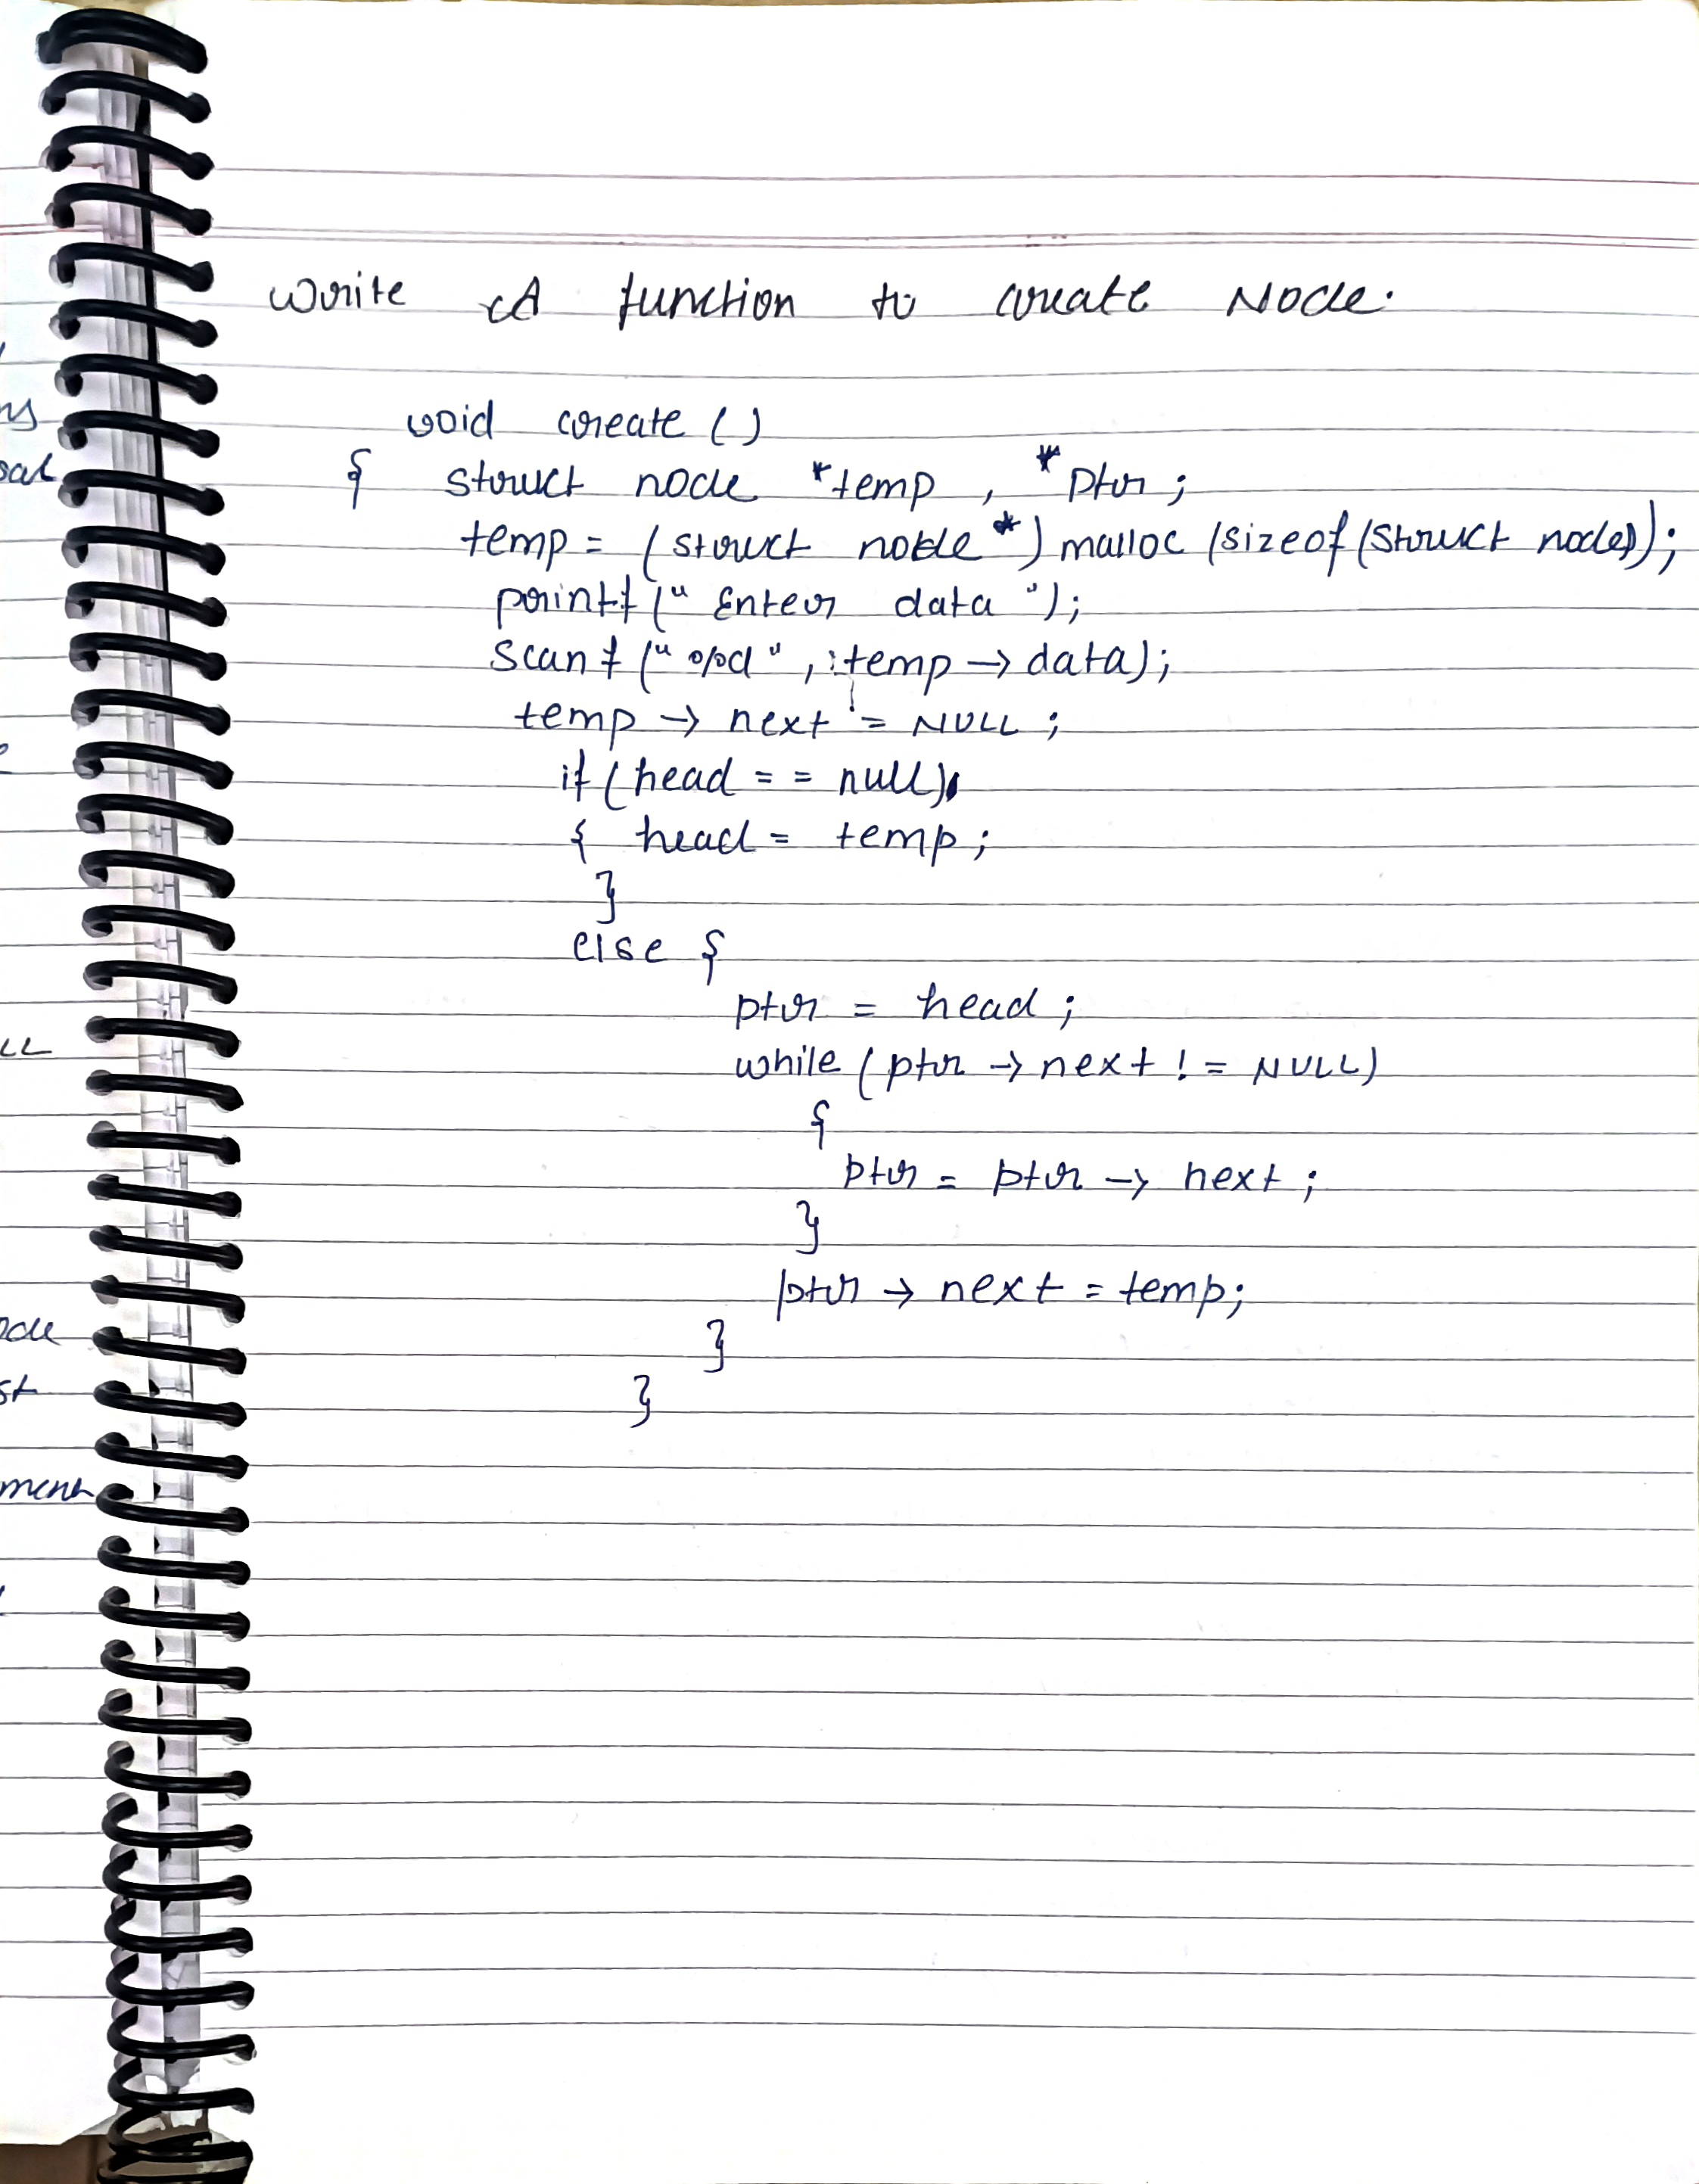 Write A function to create Node.
void create ()
{ struct node *temp , *ptr ;
temp = (struct node *) malloc (sizeof (struct node));
printf (" Enter data ");
scanf (" %d " , temp → data);
temp → next = NULL ;
if (head = = null)
{ head = temp ;
}
else {
ptr = head ;
while (ptr → next ! = NULL)
{
ptr = ptr → next ;
}
ptr → next = temp;
}
}